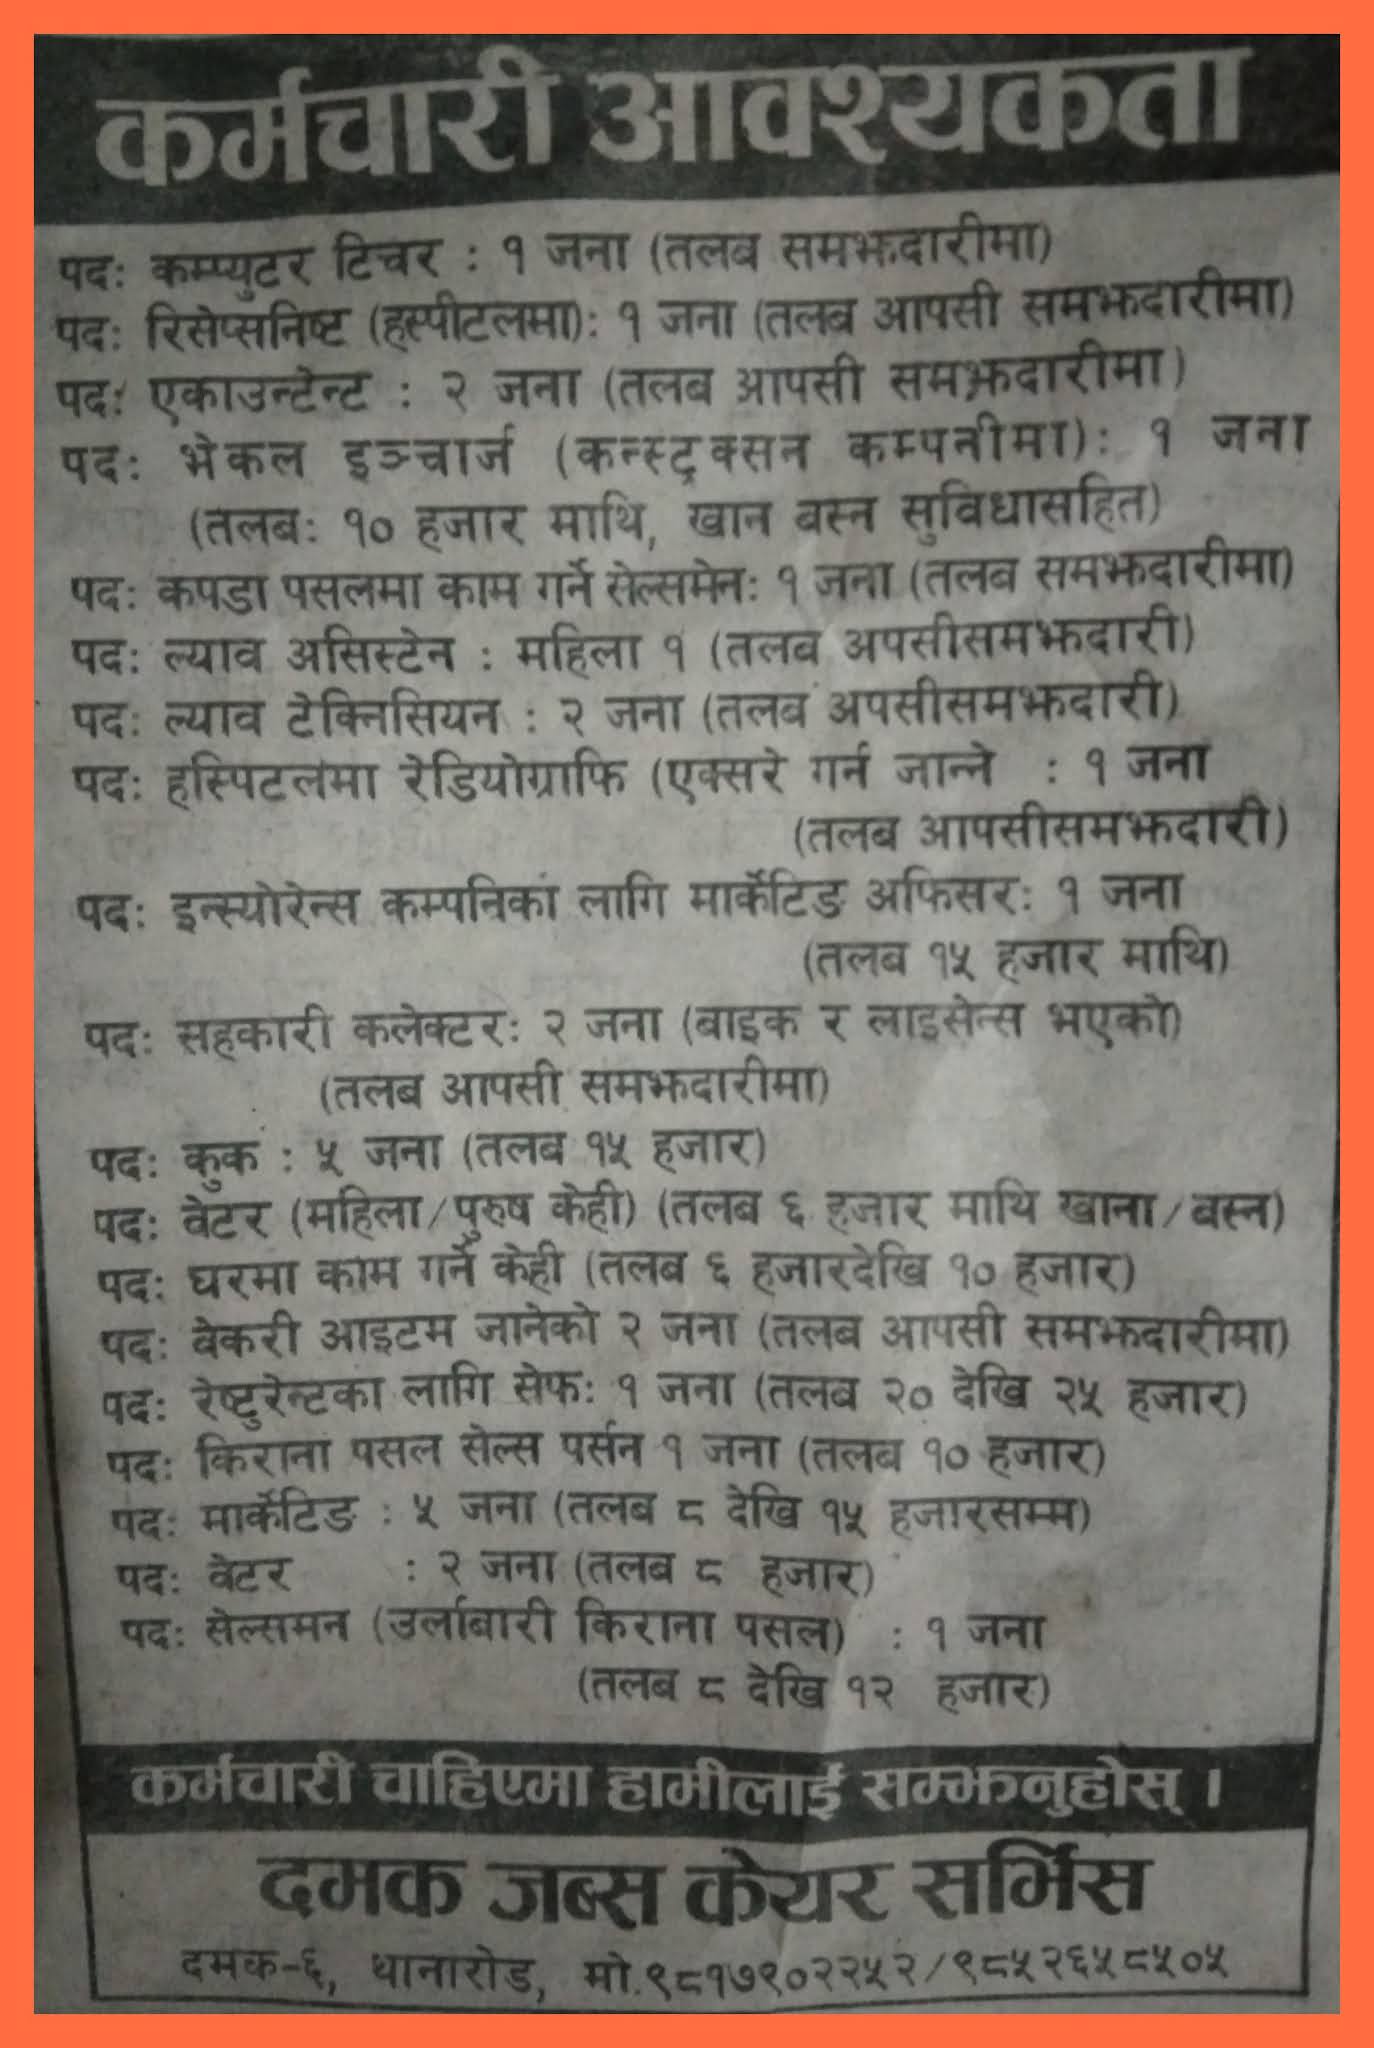 कर्मचारी आवश्यकता
पदः कम्प्युटर टिचर : १ जना (तलब समझदारीमा)
पदः रिसेप्सनिष्ट (हस्पीटलमा): १ जना (तलब आपसी समझदारीमा)
पदः एकाउन्टेन्ट : २ जना (तलब आपसी समझदारीमा)
पदः भेकल इञ्चार्ज (कन्स्ट्रक्सन कम्पनीमा): १ जना
(तलबः १० हजार माथि, खान बस्न सुविधासहित)
पदः कपडा पसलमा काम गर्ने सेल्समेनः १ जना (तलब समझदारीमा)
पदः ल्याव असिस्टेन : महिला १ (तलब अपसीसमझदारी)
पदः ल्याव टेक्निसियन : २ जना (तलब अपसीसमझदारी)
पदः हस्पिटलमा रेडियोग्राफि (एक्सरे गर्न जान्ने : १ जना
(तलब आपसीसमझदारी)
पदः इन्स्योरेन्स कम्पनिका लागि मार्केटिङ अफिसरः १ जना
(तलब १५ हजार माथि)
पदः सहकारी कलेक्टरः २ जना (बाइक र लाइसेन्स भएको)
(तलब आपसी समझदारीमा)
पदः कुक : ५ जना (तलब १५ हजार)
पदः वेटर (महिला/पुरुष केही) (तलब ६ हजार माथि खाना/बस्न)
पदः घरमा काम गर्ने केही (तलब ६ हजारदेखि १० हजार)
पदः वेकरी आइटम जानेको २ जना (तलब आपसी समझदारीमा)
पदः रेष्टुरेन्टका लागि सेफः १ जना (तलब २० देखि २५ हजार)
पदः किराना पसल सेल्स पर्सन १ जना (तलब १० हजार)
पदः मार्केटिङ : ५ जना (तलब ८ देखि १५ हजारसम्म)
पदः वेटर : २ जना (तलब ८ हजार)
पदः सेल्समन (उर्लाबारी किराना पसल) : १ जना
(तलब ८ देखि १२ हजार)
कर्मचारी चाहिएमा हामीलाई सम्झनुहोस् ।
दमक जब्स केयर सर्भिस
दमक-६, थानारोड, मो.९८१७९०२२५२/९८५२६५८५०५